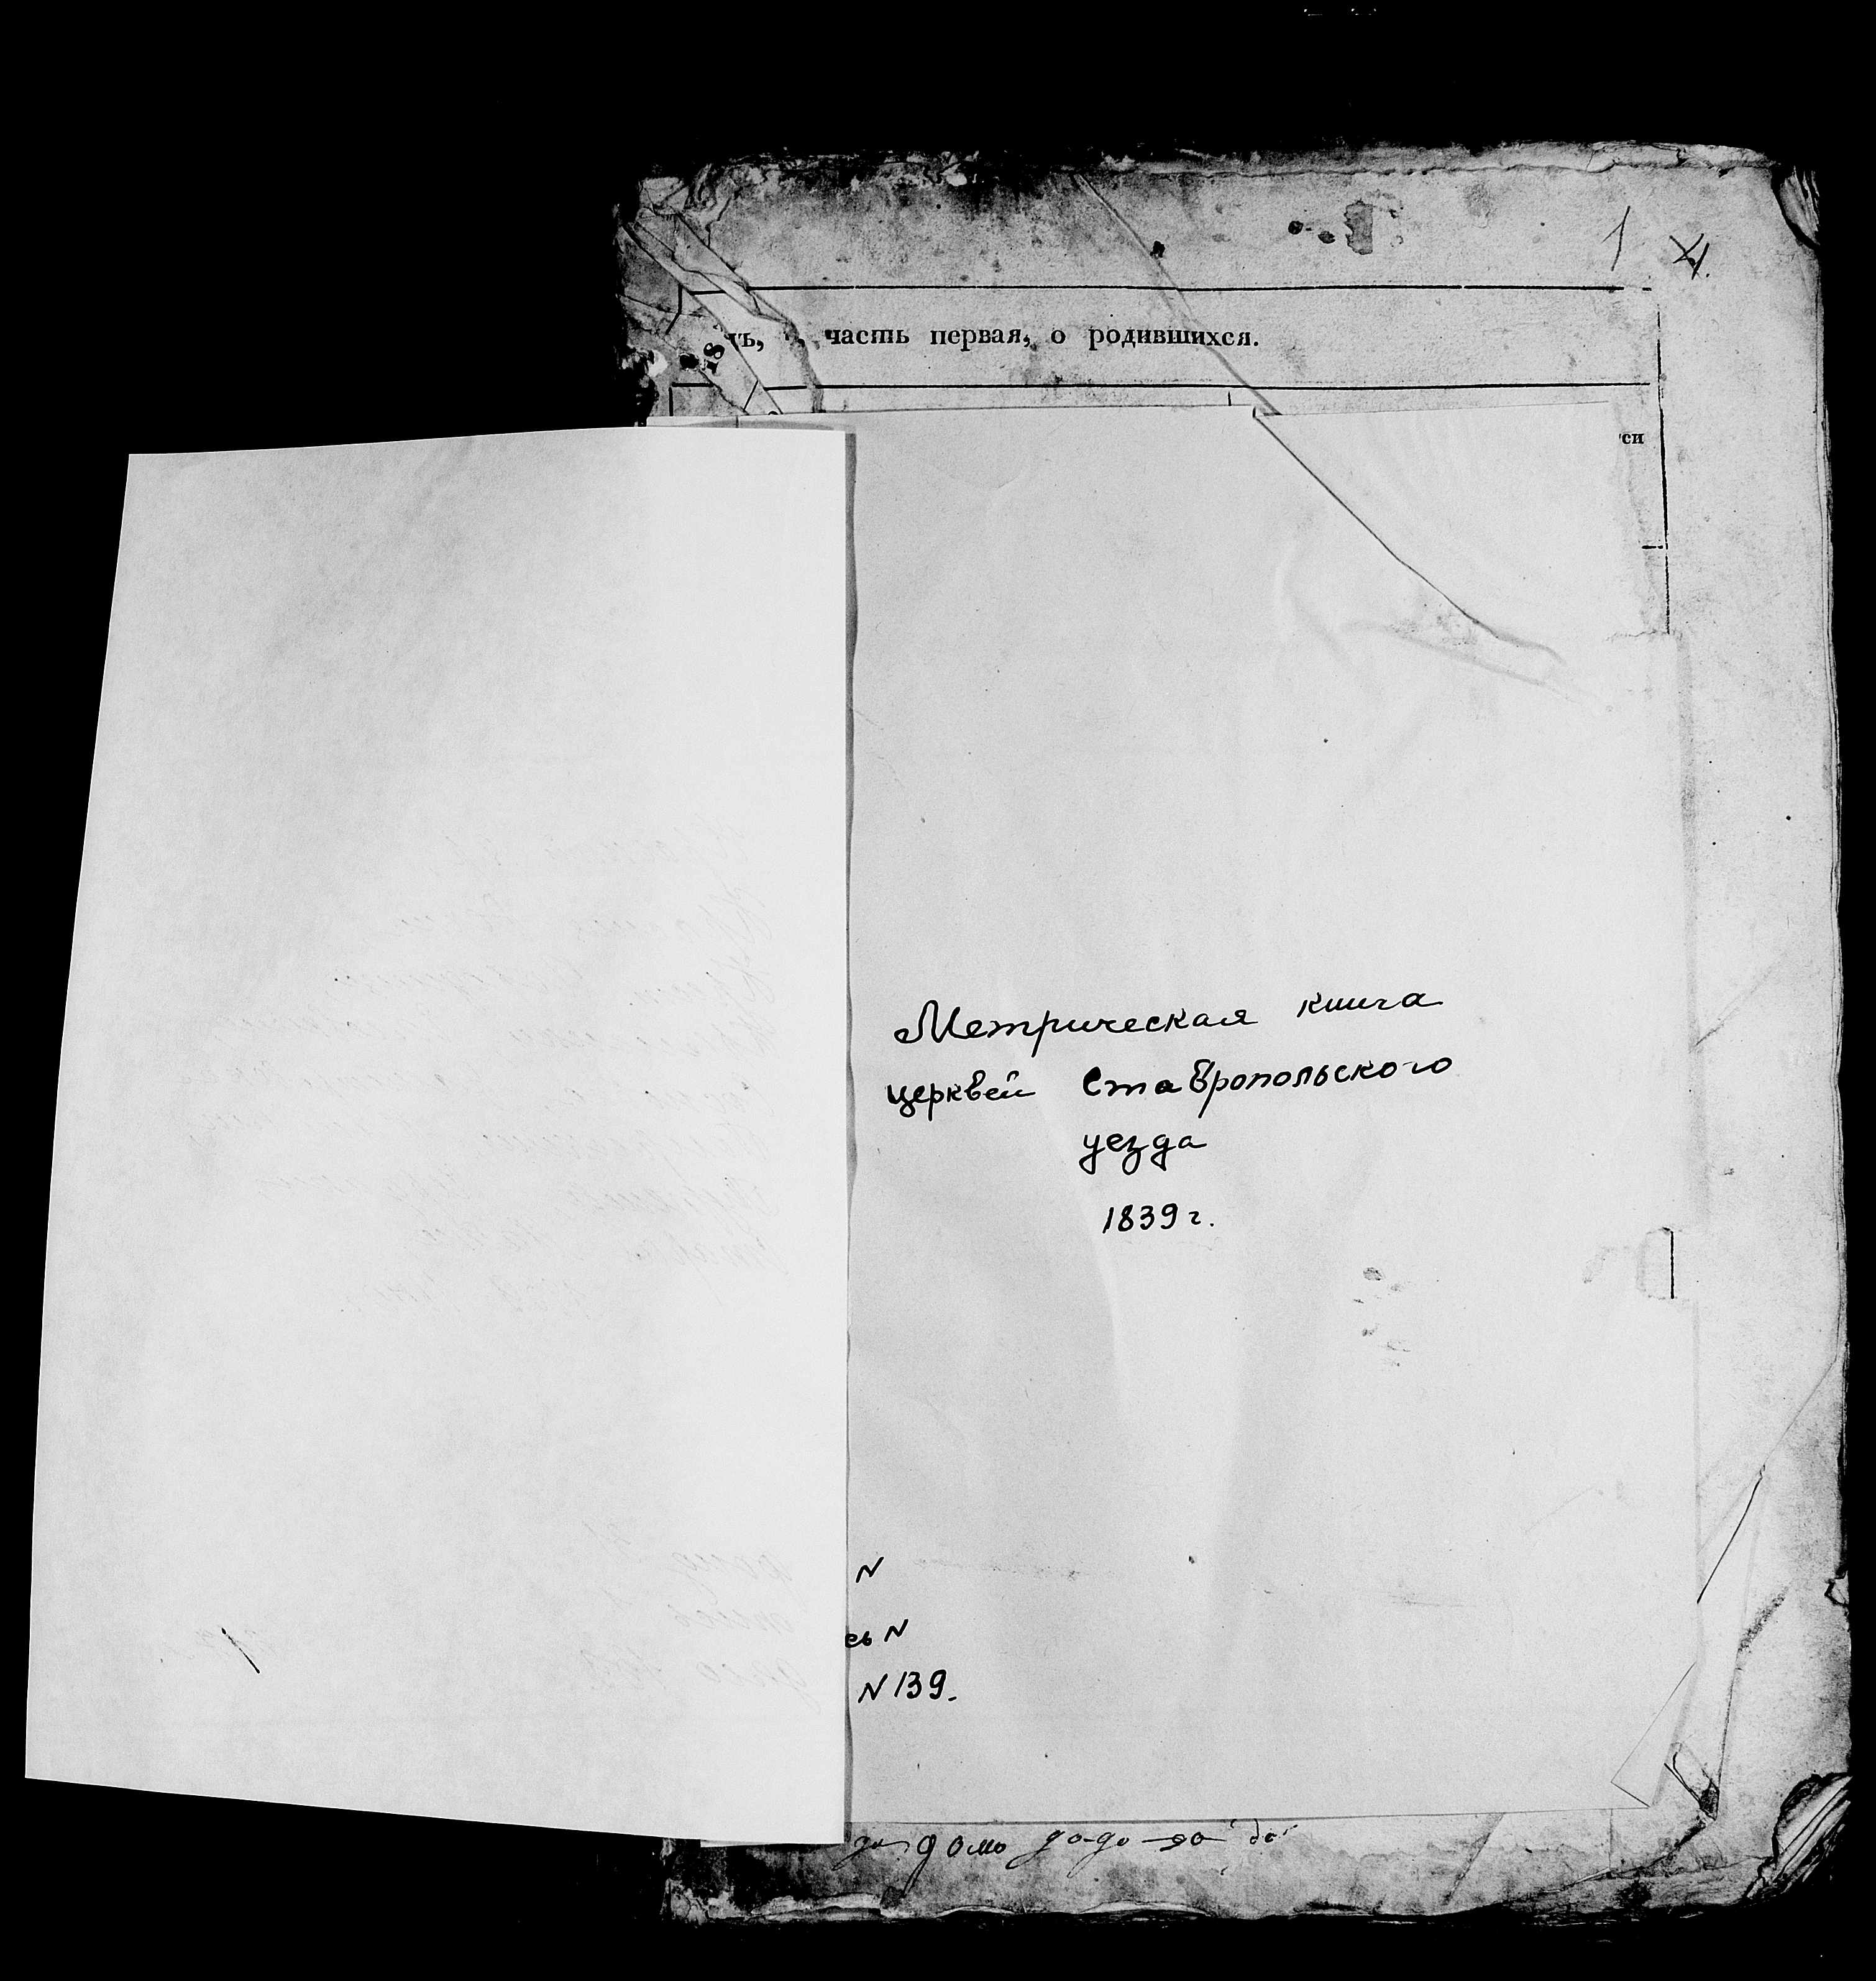 1
часть первая, о родившихся.
си
Метрическая книга
церквей Ставропольского
уезда
1839 г.
N
сь N
N 139.
домо до-до-до до